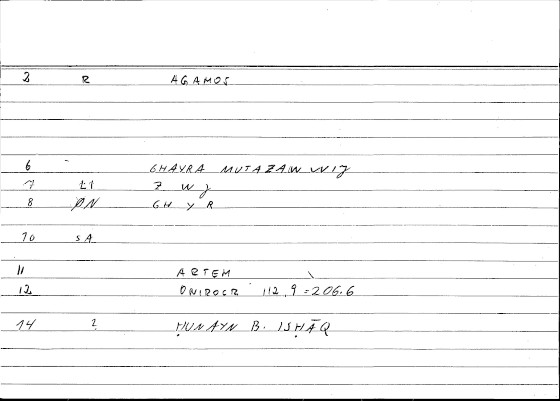 3 R AGAMOS
6 GHAYRA MUTAZAWWIJ
7 LI Z W J
8 ØN GH Y R
10 SA
11 ARTEM
12 ONIROCR 112,9 = 206.6
14 2 ḤUNAYN B. ISḤĀQ